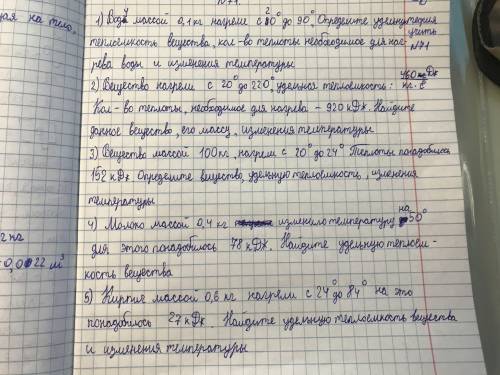 N71.
ая на тело.
1) Воду массой 0,1 кг нагрели с 80° до 90°. Определите удельную
теплоёмкость вещества, кол-во теплоты необходимое для наг-
рева воды и изменения температуры
теория
учить
N71
2) Вещество нагрели с 20° до 220°, удельная теплоёмкость: 460 Дж кг. С
Кол-во теплоты, необходимое для нагрева - 920 кДж. Найдите
данное вещество, его массу, изменения температуры.
3) Вещество массой 100кг, нагрели с 20° до 24° Теплоты понадобилось
152 кДж Определите вещество, удельную теплоёмкость, изменения
температуры
4) Молоко массой 0,4 кг изменило температуру на 50°
для этого понадобилось 78 кДж. Найдите удельную теплоём-
кость вещества
5) Кирпич массой 0,6 кг нагрели с 24° до 84° на это
понадобилось 27 кДж. Найдите удельную теплоёмкость вещества
и изменения температуры
2 на
0,022 м³